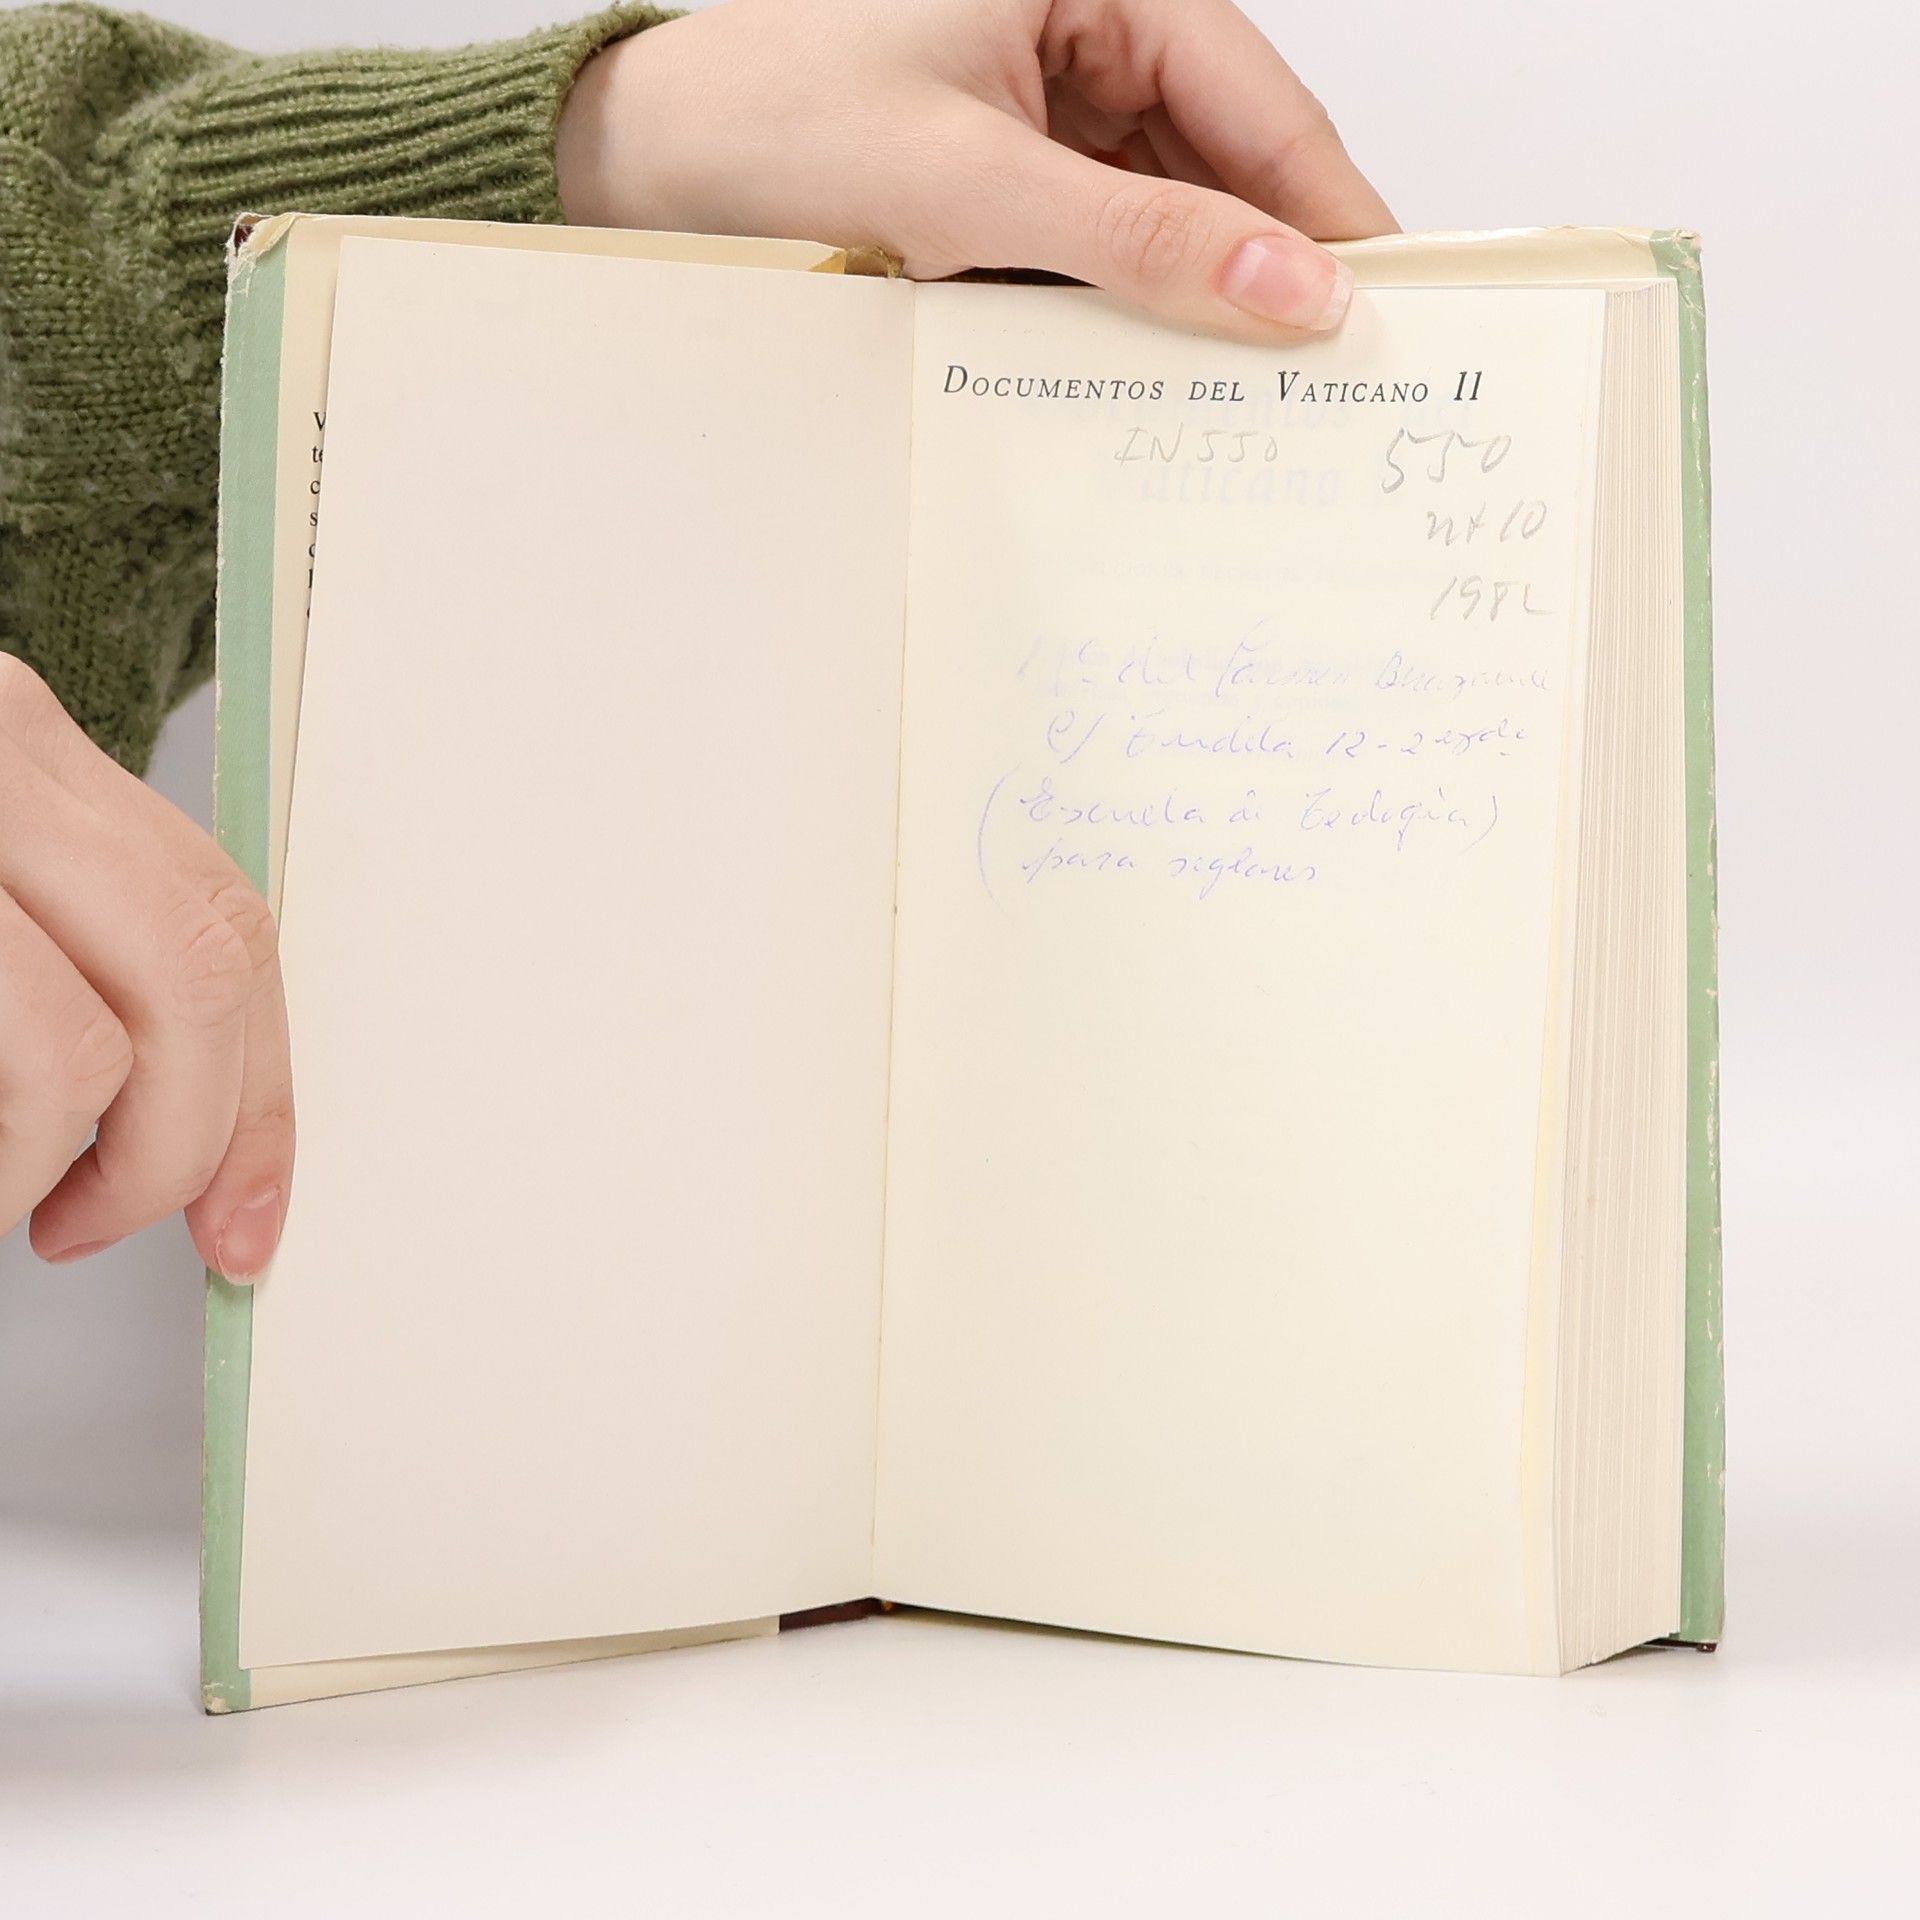 DOCUMENTOS DEL VATICANO II
IN 550
550
1982
Mª del Carmen
c/ Tudela 12-2 izda
(Escuela de Teología)
para seglares